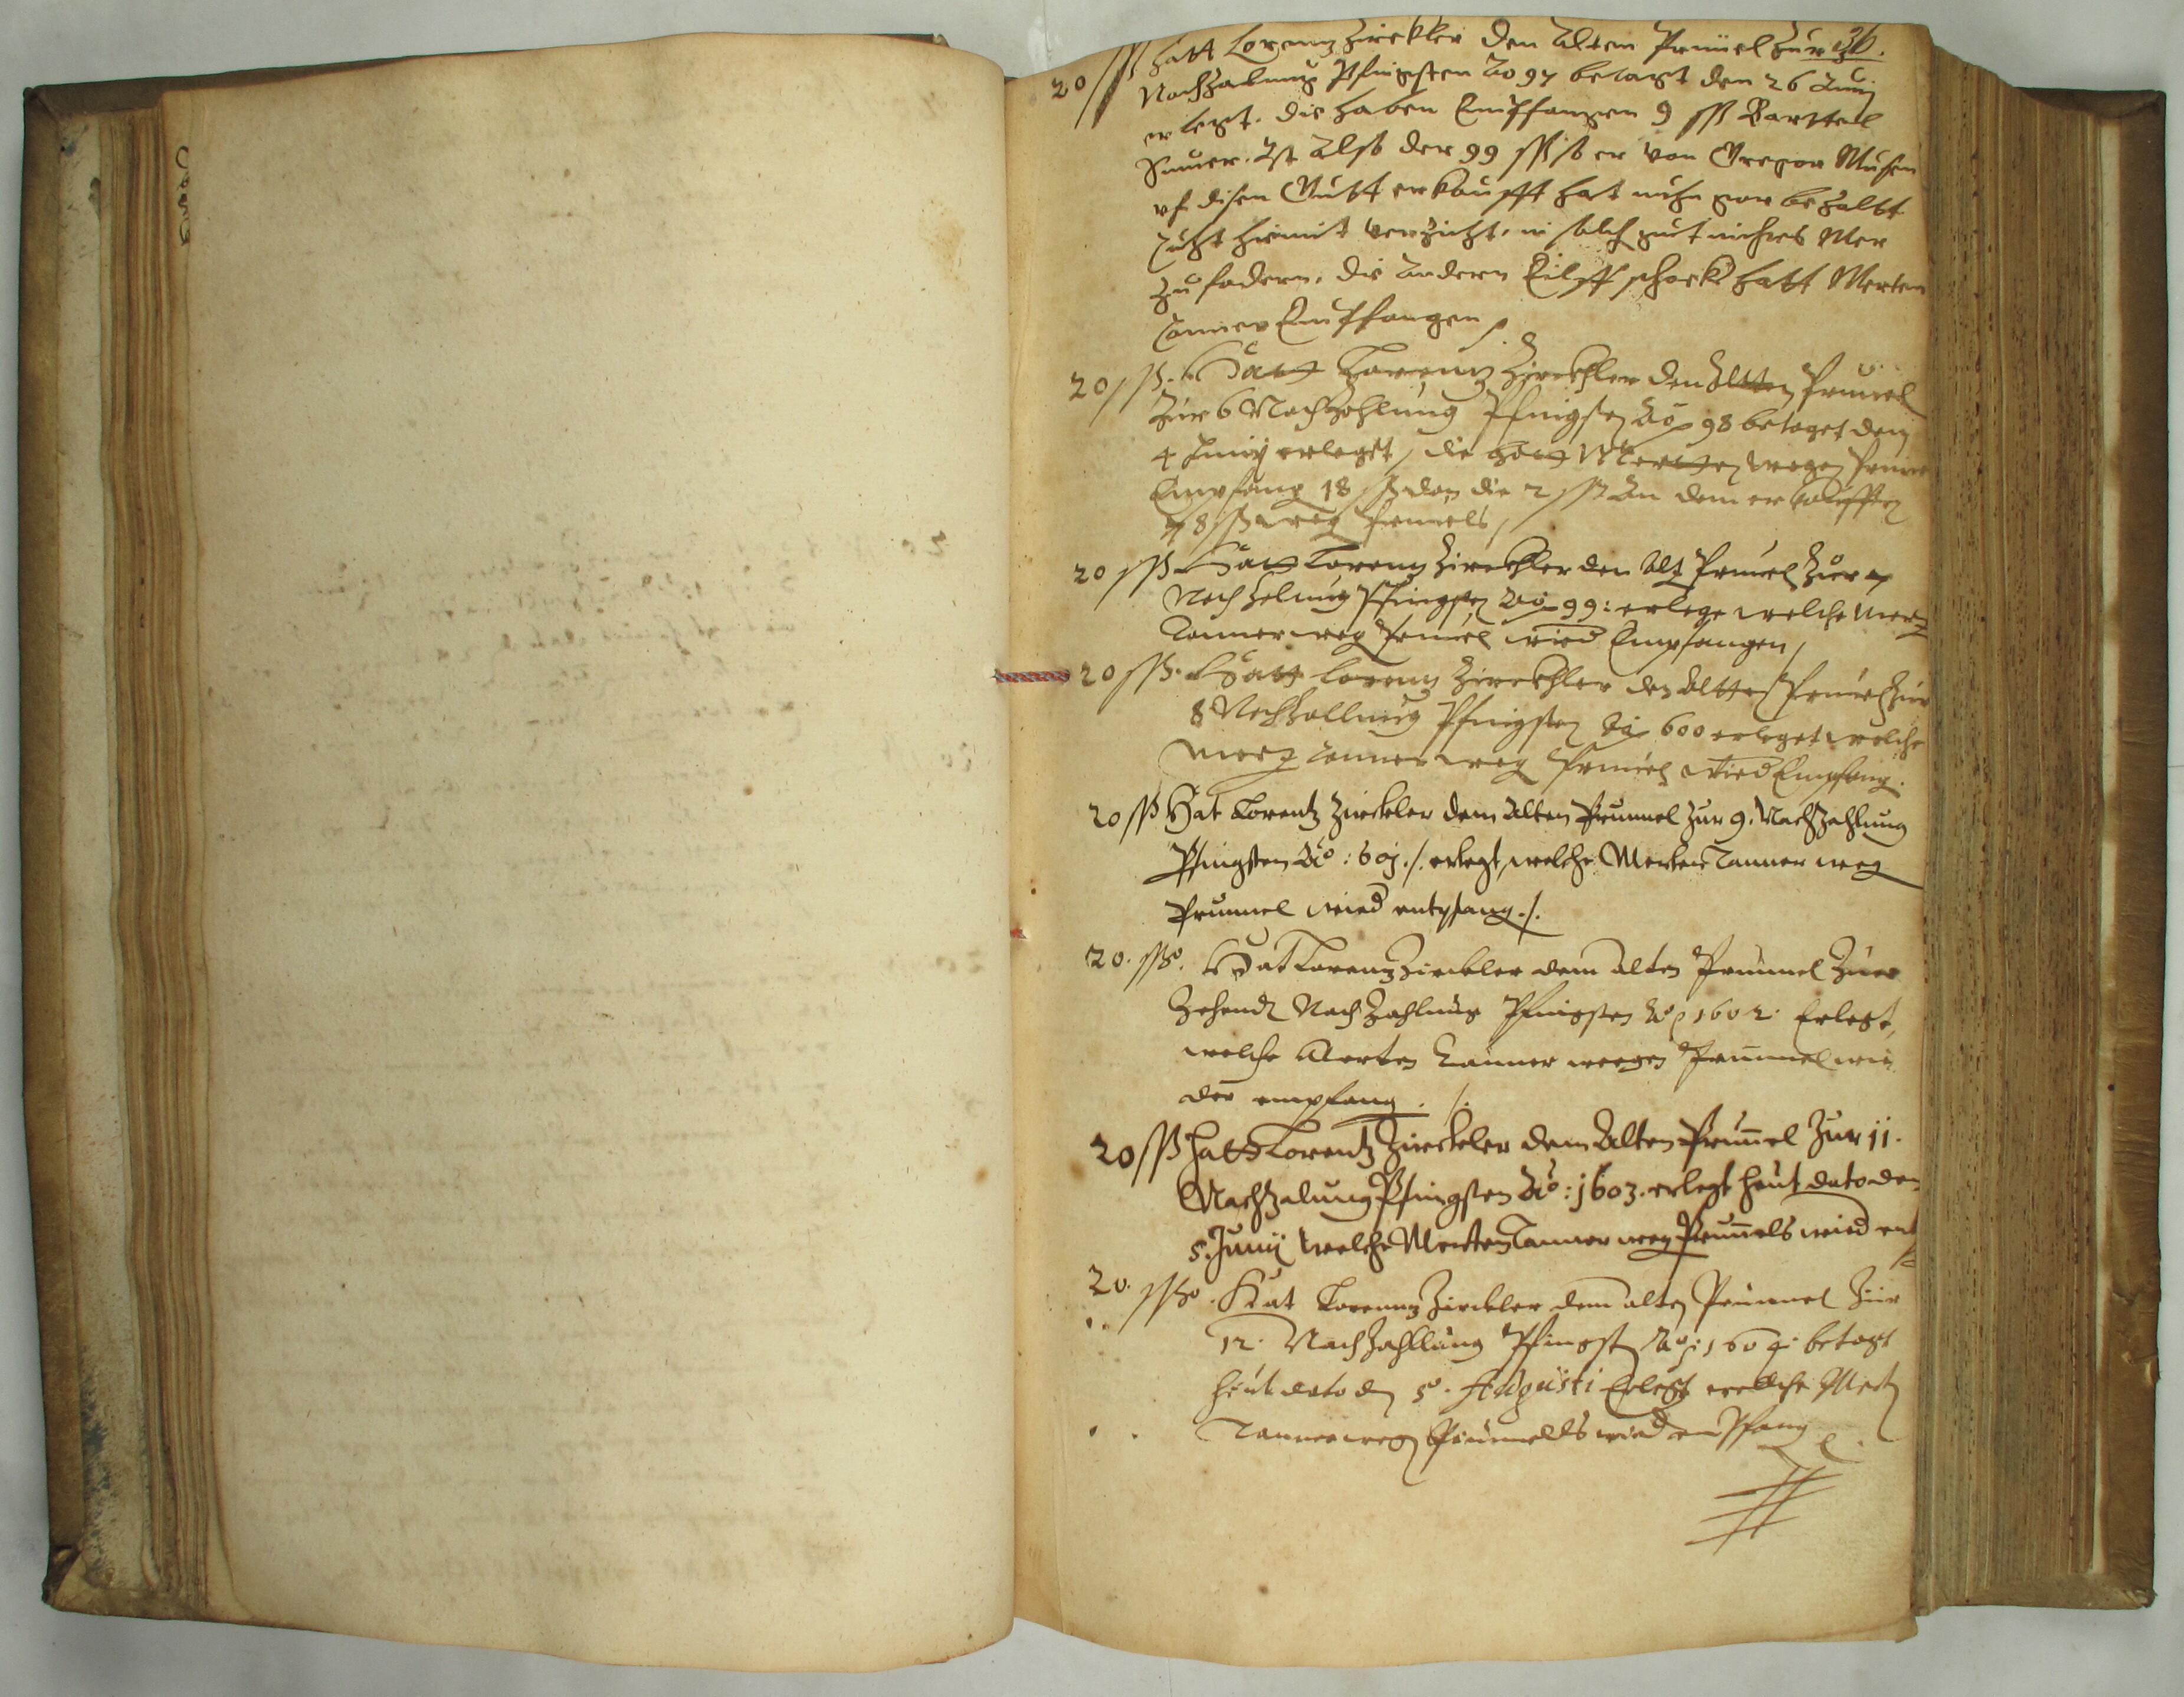 36.
20 ss hatt Lorentz Zirckler den Alten Prumel zur
Nachzalung Pfingsten Ao 97 betagt den 26 Juni
erlegt. die haben Empfangen 9 ss Barttel
Ist Also der 99 ss so er von Gregor
uf disen Gutt erkaufft hat nuhn gar bezaltt
hiemit verzicht, in solch gut nichts Mer
zu fodern, die Andern Eilff schock hatt Merten
Tanner Empfangen
20 ss. Hatt Lorentz Zirckhler den Altten Prumel
Zur 6 Nachzahlung Pfingsten Ao 98 betaget den
4 Junij erleget, die hatt Merten wegen
Empfang 18 ss dan die 2 ss An dem erkaufften
78 ss weg Prumels
20 ss Hatt Lorentz Zirckhler den Alt Prumel Zur 7
Nachzalung Pfingsten Ao 99: erlegt welche Mert
Tanner weg Prumel wied Empfangen
20 ss. Hatt Lorentz Zirckhler den Altten Prumel Zur
8 Nachzallung Pfingsten Ao 600 erleget welche
Mert Tanner weg Prumel wied Empfang.
20 ss Hat Lorentz Zirckeler dem Alten Prummel zur 9. Nachzahlung
Pfingsten Ao: 601 ./. erlegt, welche Merten Tanner weg
Prummel wied entpfang ./.
20. sso. Hat Lorentz Zirckler dem alten Prummel Zuer
Zehend Nachzahlung Pfingsten Ao 1602. Erlegt,
welche Merten Tanner wegen Prummel wie
der empfang . /.
20 ss Hatt Lorentz Zirckeler dem Alten Prum̄el Zur 11.
Nachzalung Pfingsten Ao: 1603. erlegt heut dato den
5. Junij welche Merten Tanner weg Prum̄els wied ent
20. sso. Hat Lorentz Zirckler dem alten Prummel Zur
12. Nachzahllung Pfingst Ao: 1604. betagt
heut dato den 5o. Augusti Erlegt welche Mert
Tanner weg Prummells wied empfang